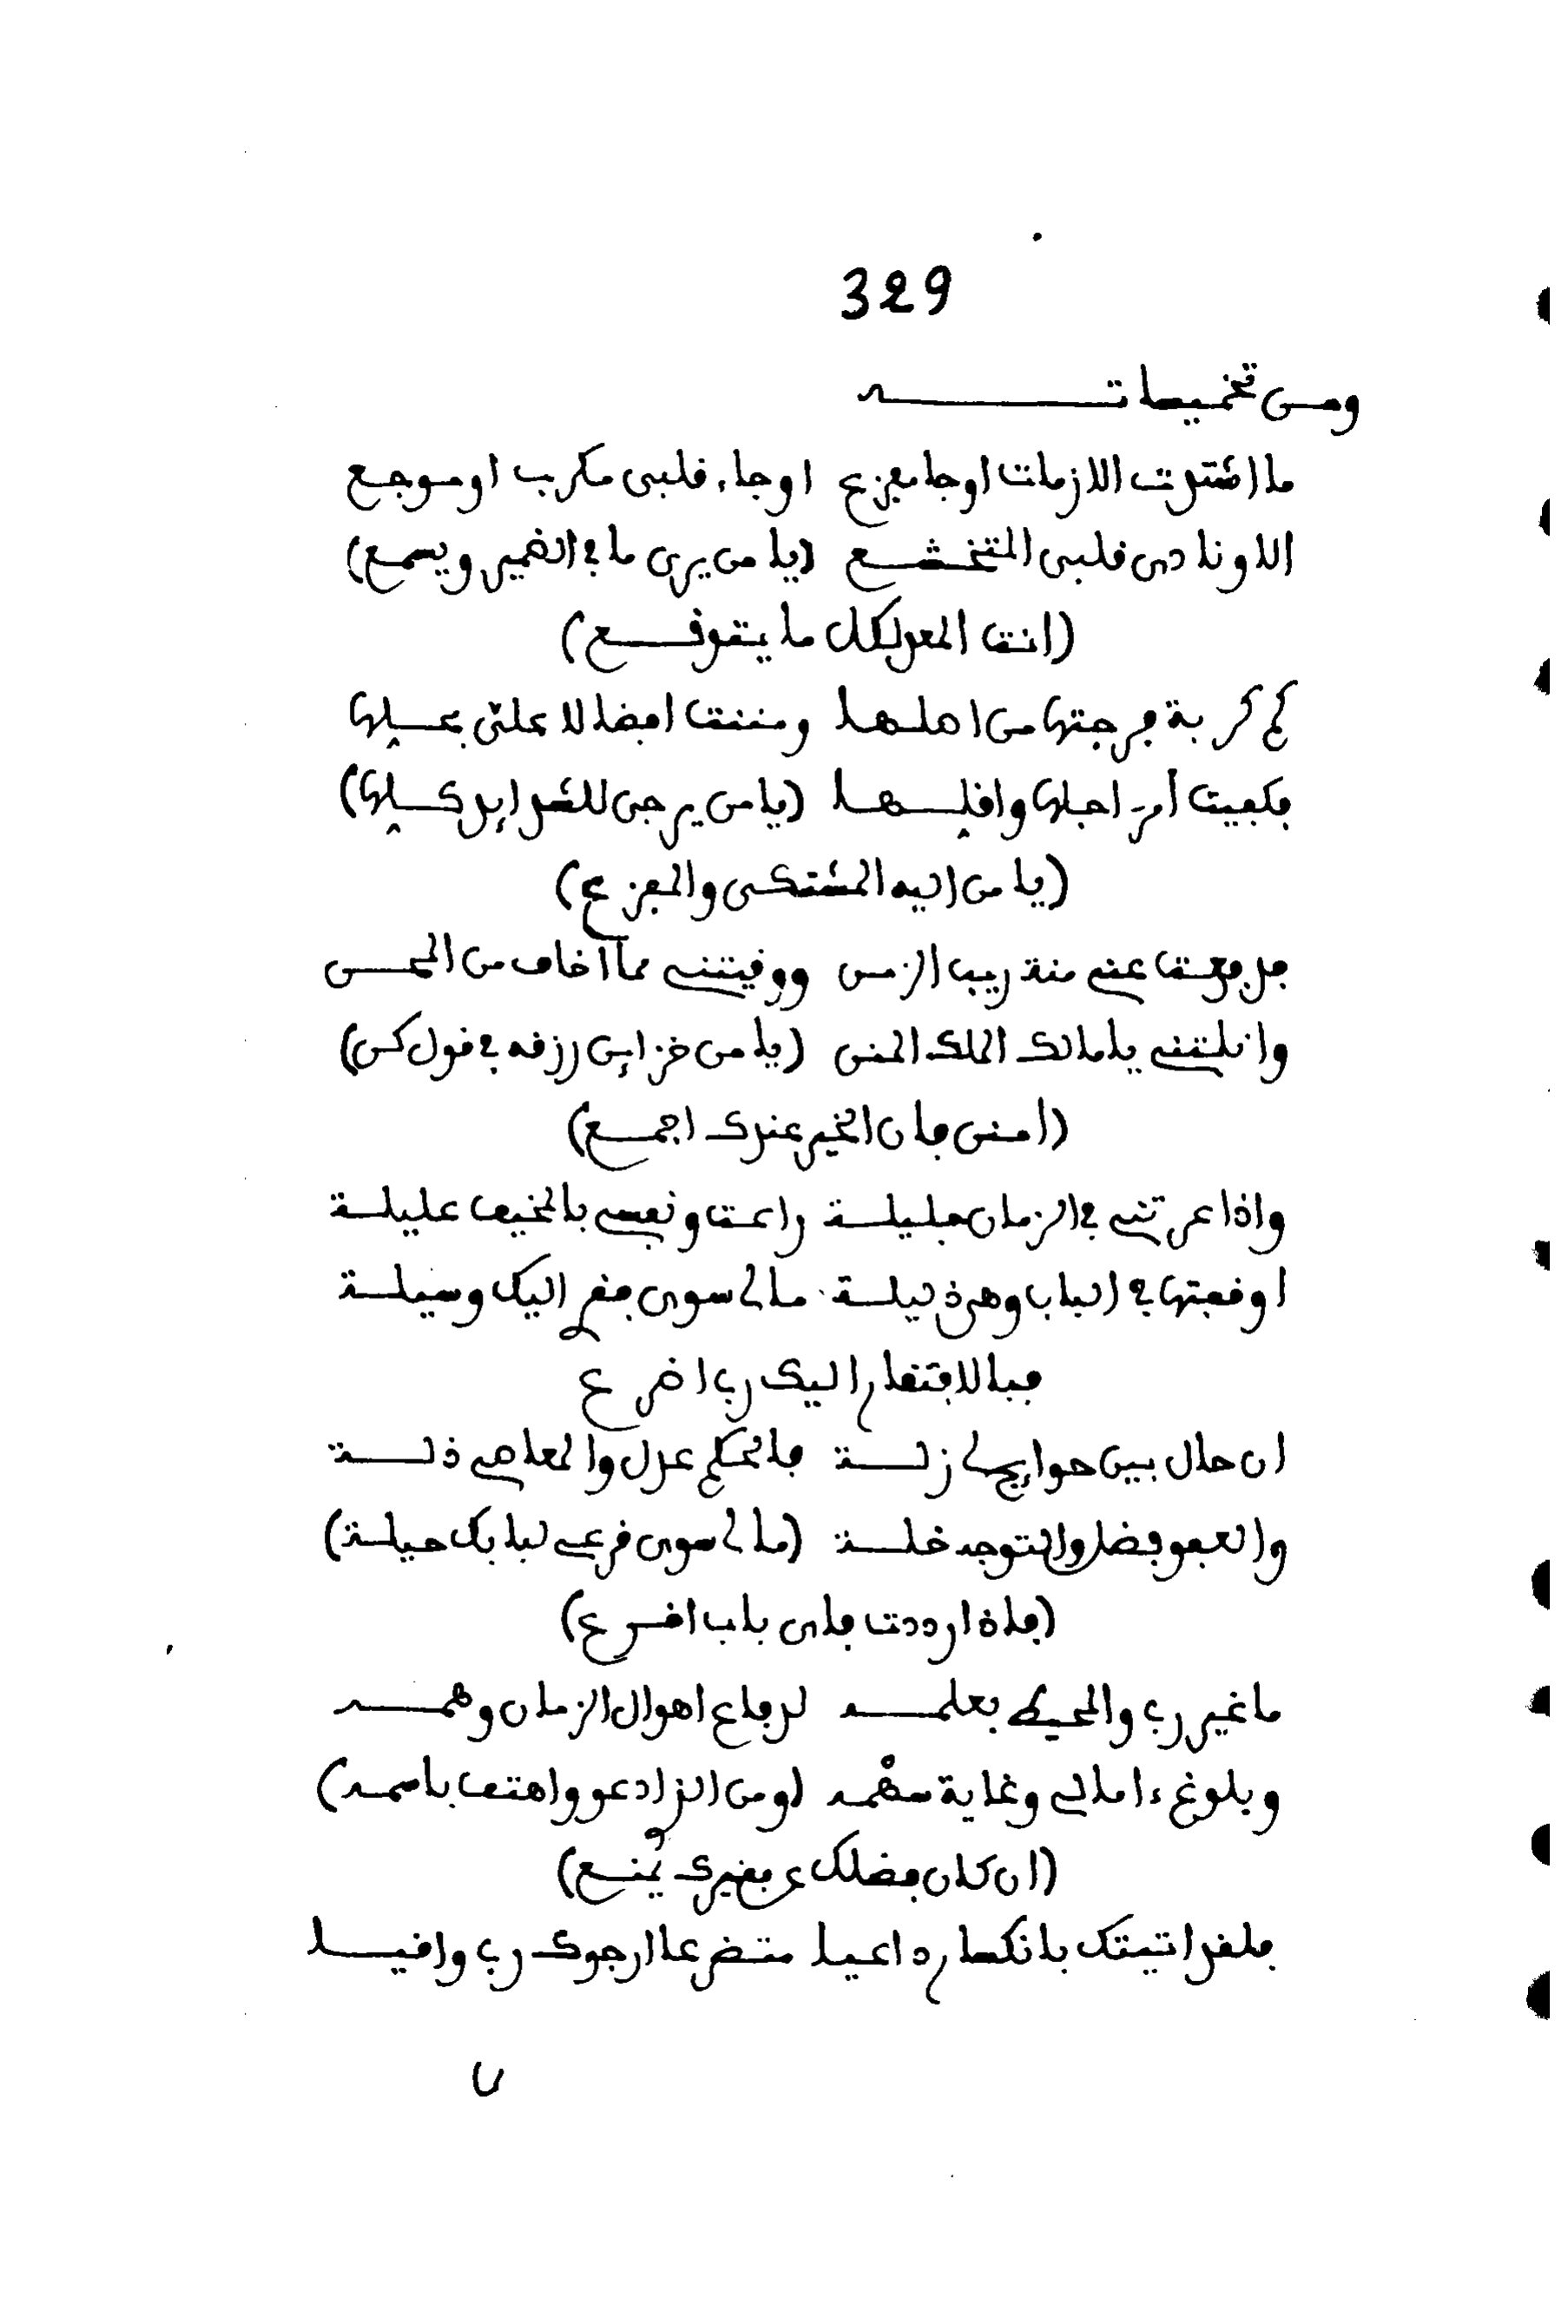 329
ومن تخميساته
ما اشتدت الازمات اوجا مفزع اوجاء قلبى مكرب او موجع
الا ونادى قلبى المتخشع (يا من يرى ما في الضمير ويسمع)
(انت المعد لكل ما يتوقع)
كم كربة فرجتها من اهلها ومننت افضالا على بحلها
فكفيت امر اجلها واقلها (يا من يرجى للشدايد كلها)
(يا من اليه المشتكى والمفزع)
فدفعت عني منة ريب الزمن ووقيتني مما اخاف من المحن
وانلتني يا مالك الملك المنن (يا من خزاين رزقه في قول كن)
(امنن فان الخير عندك اجمع)
واذا عرتني في الزمان جليلة راعت ونفسي بالمخيف عليلة
اوقفتها في الباب وهي ذليلة ما لي سوى فقري اليك وسيلة
فبالافتقار اليك رب اضرع
ان حال بين حوايجي زلة فالحكم عدل والمعاصي ذلة
والعفو فضل والتوجه خلة (ما لي سوى قرعي لبابك حيلة)
(فاذا رددت فاي باب اقرع)
ما غير ربي والمحيط بعلمه لدفاع اهوال الزمان وهمه
وبلوغ ءامالي وغاية سهمه (ومن الذي ادعو واهتف باسمه)
(ان كان فضلك عن فقيرك يُمنع)
فلقد اتيتك بانكسار داعيا متضرعا ارجوك رب واقيا